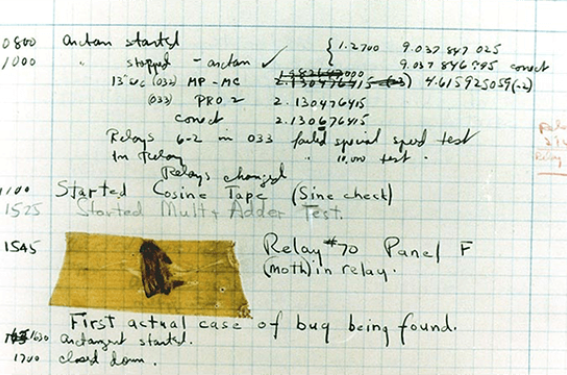 0800 Antan started
1000 " stopped - antan ✓ { 1.2700 9.037 847 025
9.037 846 795 correct
13"uc (032) MP - MC 2.130476415 4.615925059(-2)
(033) PRO 2 2.130476415
correct 2.130676415
Relays 6-2 in 033 failed special speed test
In Relay " 10,000 test .
Relays changed
1100 Started Cosine Tape (Sine check)
1525 Started Mult + Adder Test.
1545 Relay #70 Panel F
(moth) in relay.
First actual case of bug being found.
1630 antangent started.
1700 closed down .